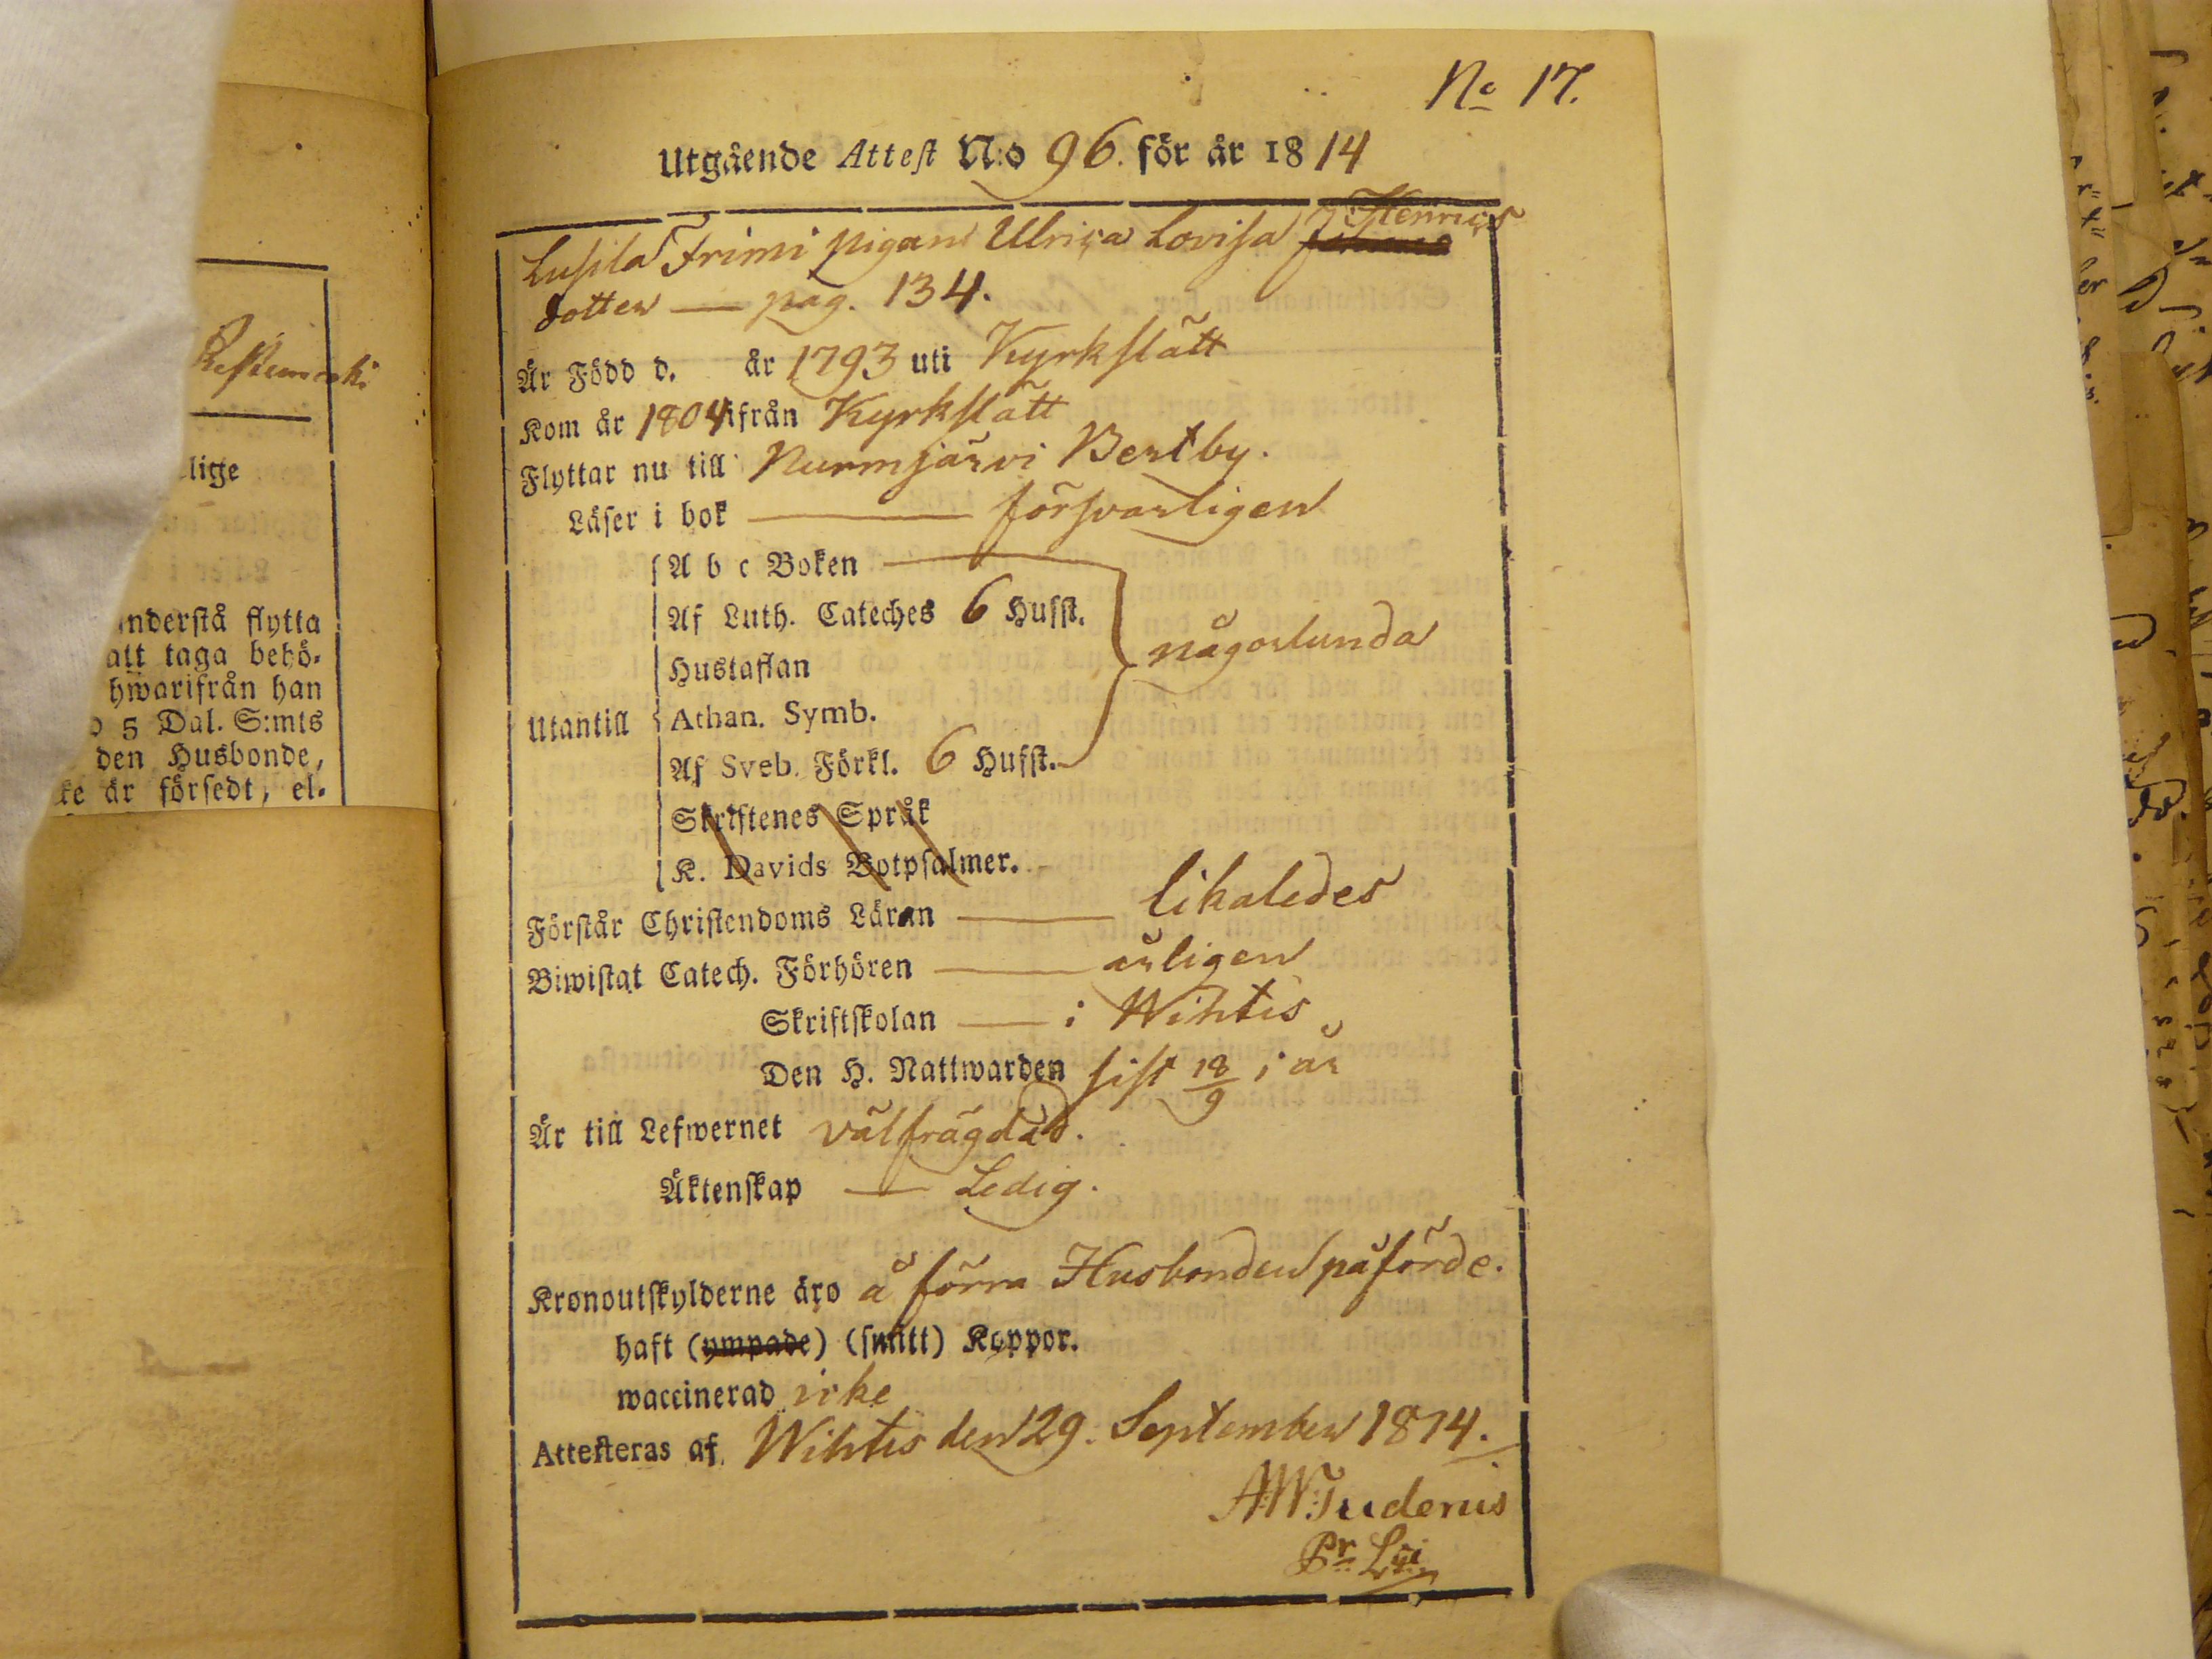 No 17.
Utgående Attest N:o 96. för år 1814
Lusila Frimi pigan Ulrica Lovisa Henrics
dotter — pag. 134.
Är Född d. år 1793 uti Kyrkslätt
Kom år 1804 ifrån Kyrkslätt
Flyttar nu till Nurmjärvi Bertby.
Läser i bok — försvarligen
A b c Boken
Af Luth. Cateches 6 Hufst.
någorlunda
Hustaflan
Utantill
Athan. Symb.
Af Sveb. Förkl. 6 Hufst.
Skriftenes Språk
K. Davids Botpsalmer.
Förstår Christendoms Läran — likaledes
Biwistat Catech. Förhören — årligen
Skriftskolan — i Wihtis
Den H. Nattwarden sist 18/9 i år
Är till Lefwernet välfrägdad.
Äktenskap — Ledig.
Kronoutskylderne äro å förra Husbonden påförde.
haft (ympade) (smitt) Koppor.
waccinerad icke
Attesteras af Wihtis den 29. September 1814.
AW Tudenus
lige
nderstå flytta
att taga behö-
hwarifrån han
5 Dal. S:mts
den Husbonde,
ke är försedt, el-